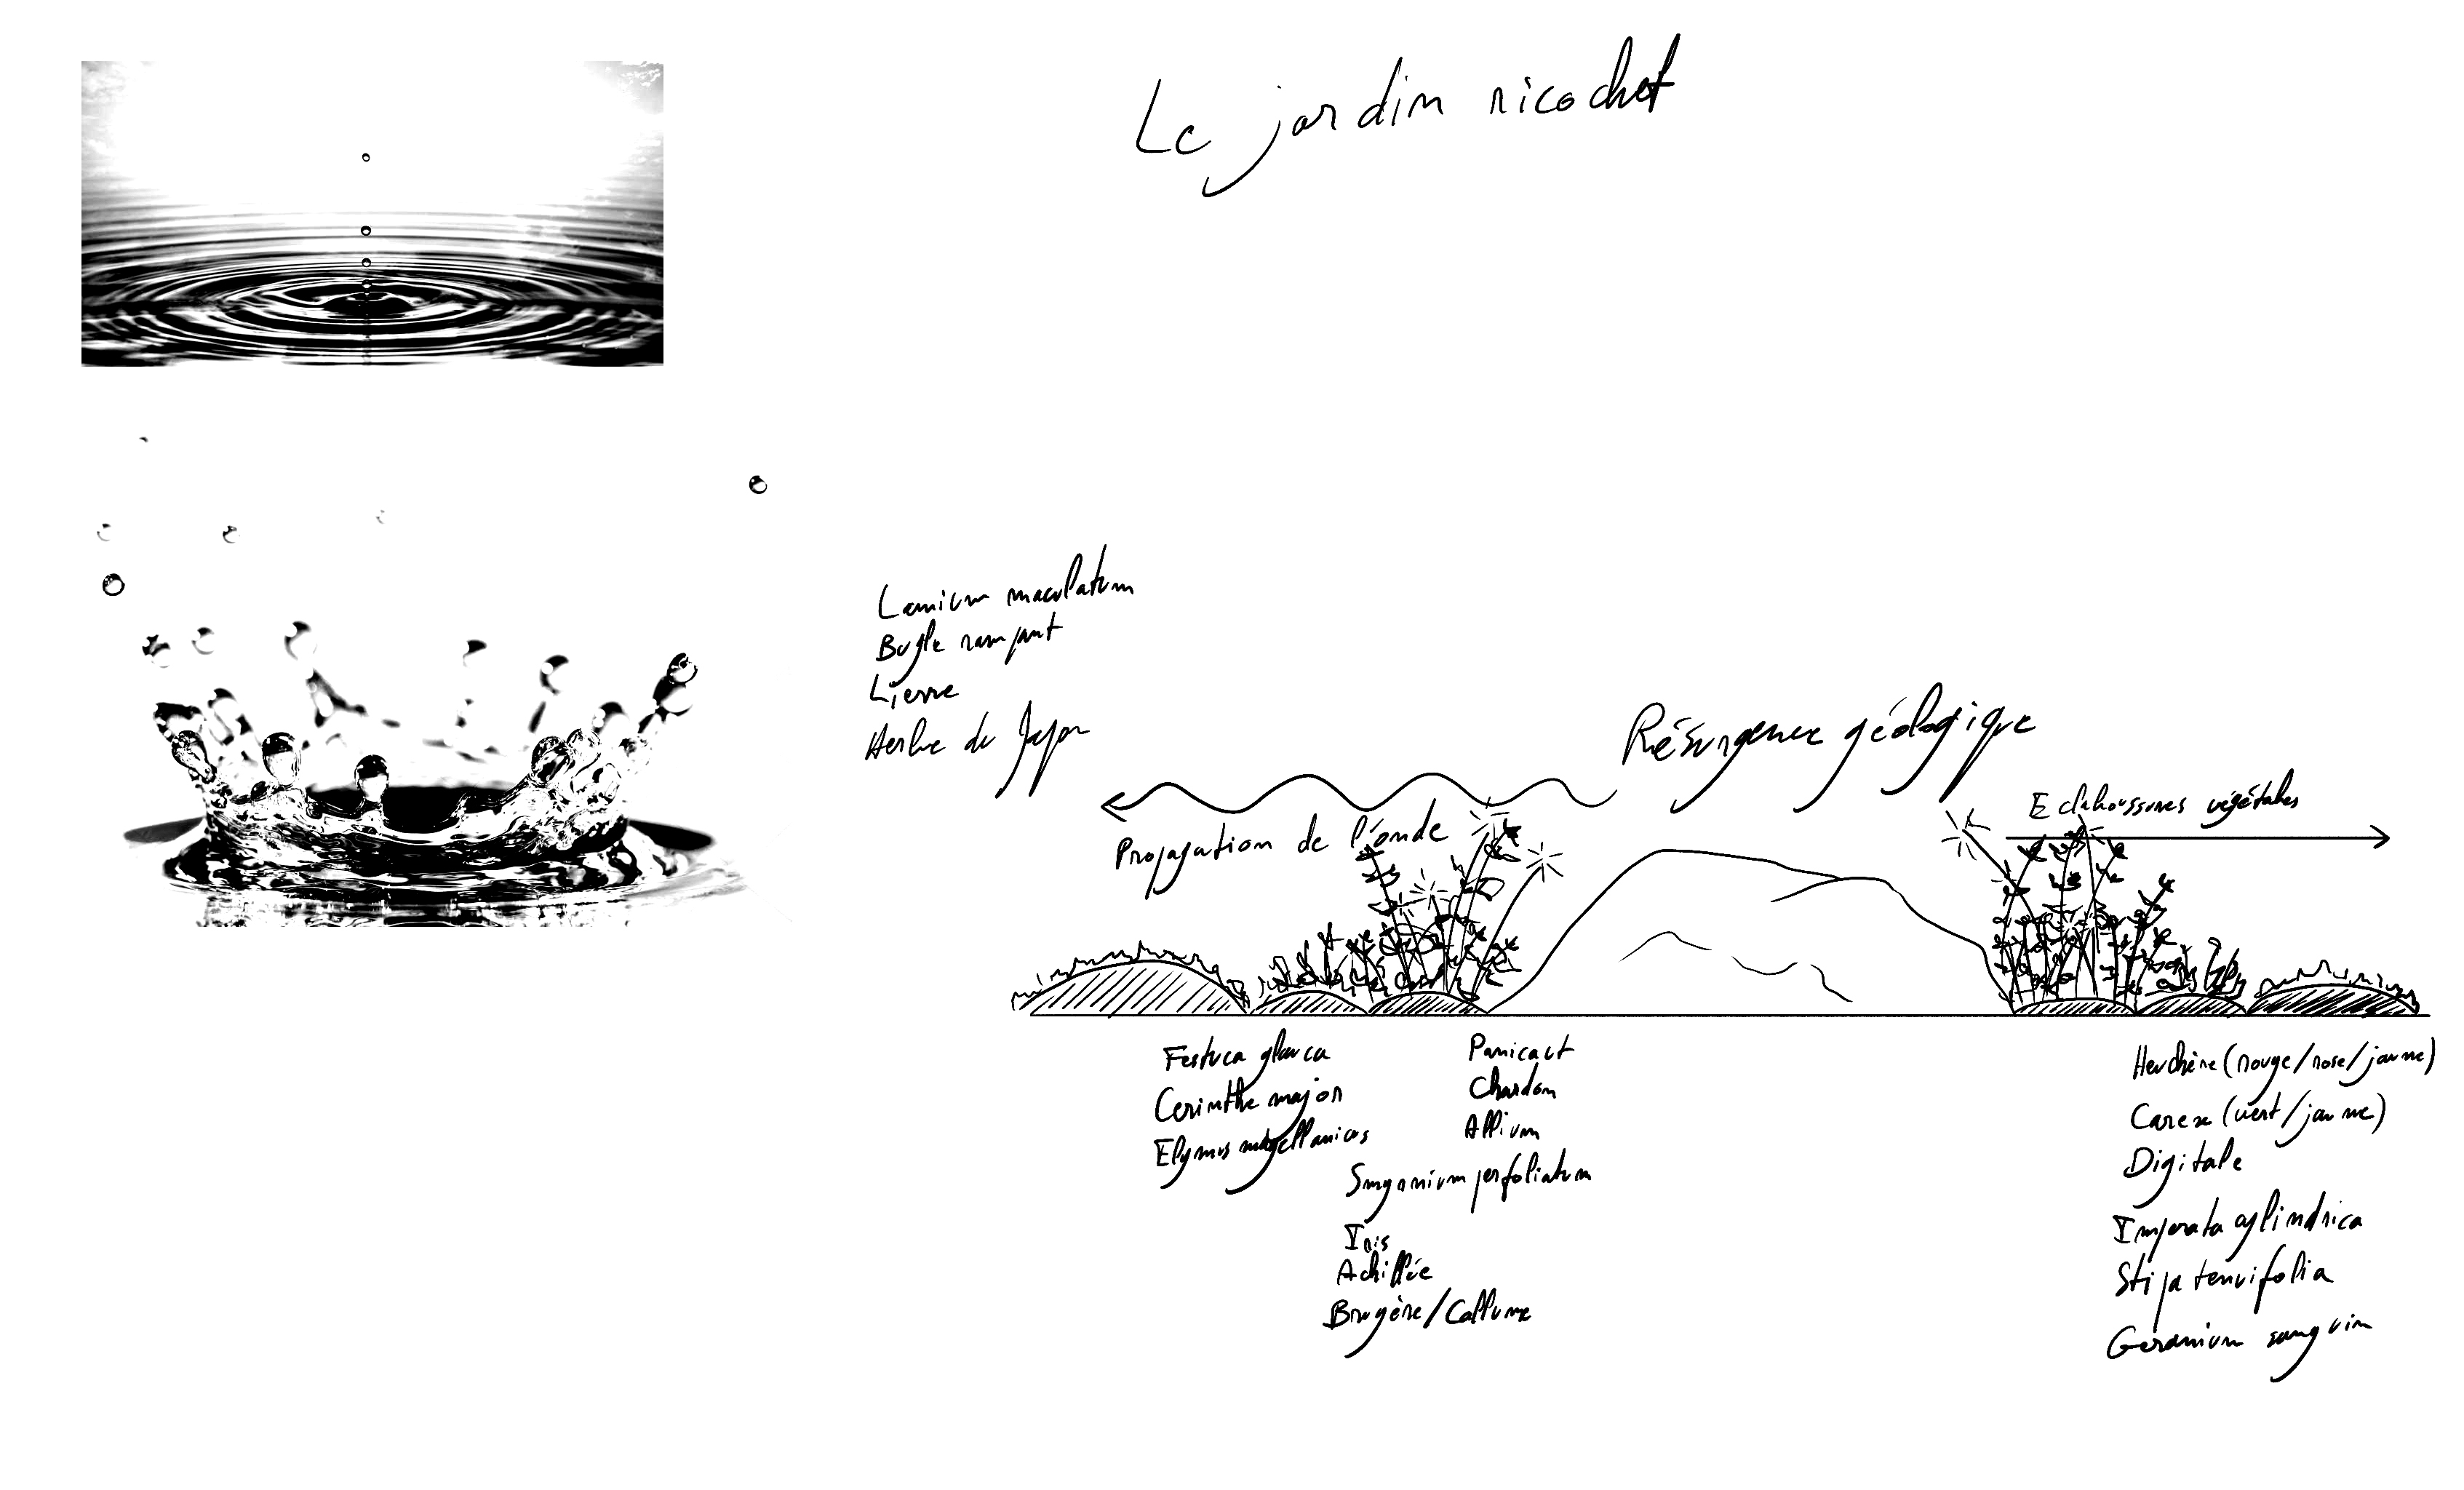 Le jardin ricochet
Lamium maculatum
Bugle rampant
Lierre
Herbe du Japon
Résurgence géologique
Propagation de l'onde
Eclaboussures végétales
Festuca glauca
Cerinthe major
Elymus magellanicus
Panicaut
Chardon
Allium
Smyrnium perfoliatum
Iris
Achillée
Bruyère/Callune
Heuchère (rouge/rose/jaune)
Carex (vert/jaune)
Digitale
Imperata cylindrica
Stipa tenuifolia
Geranium sanguin